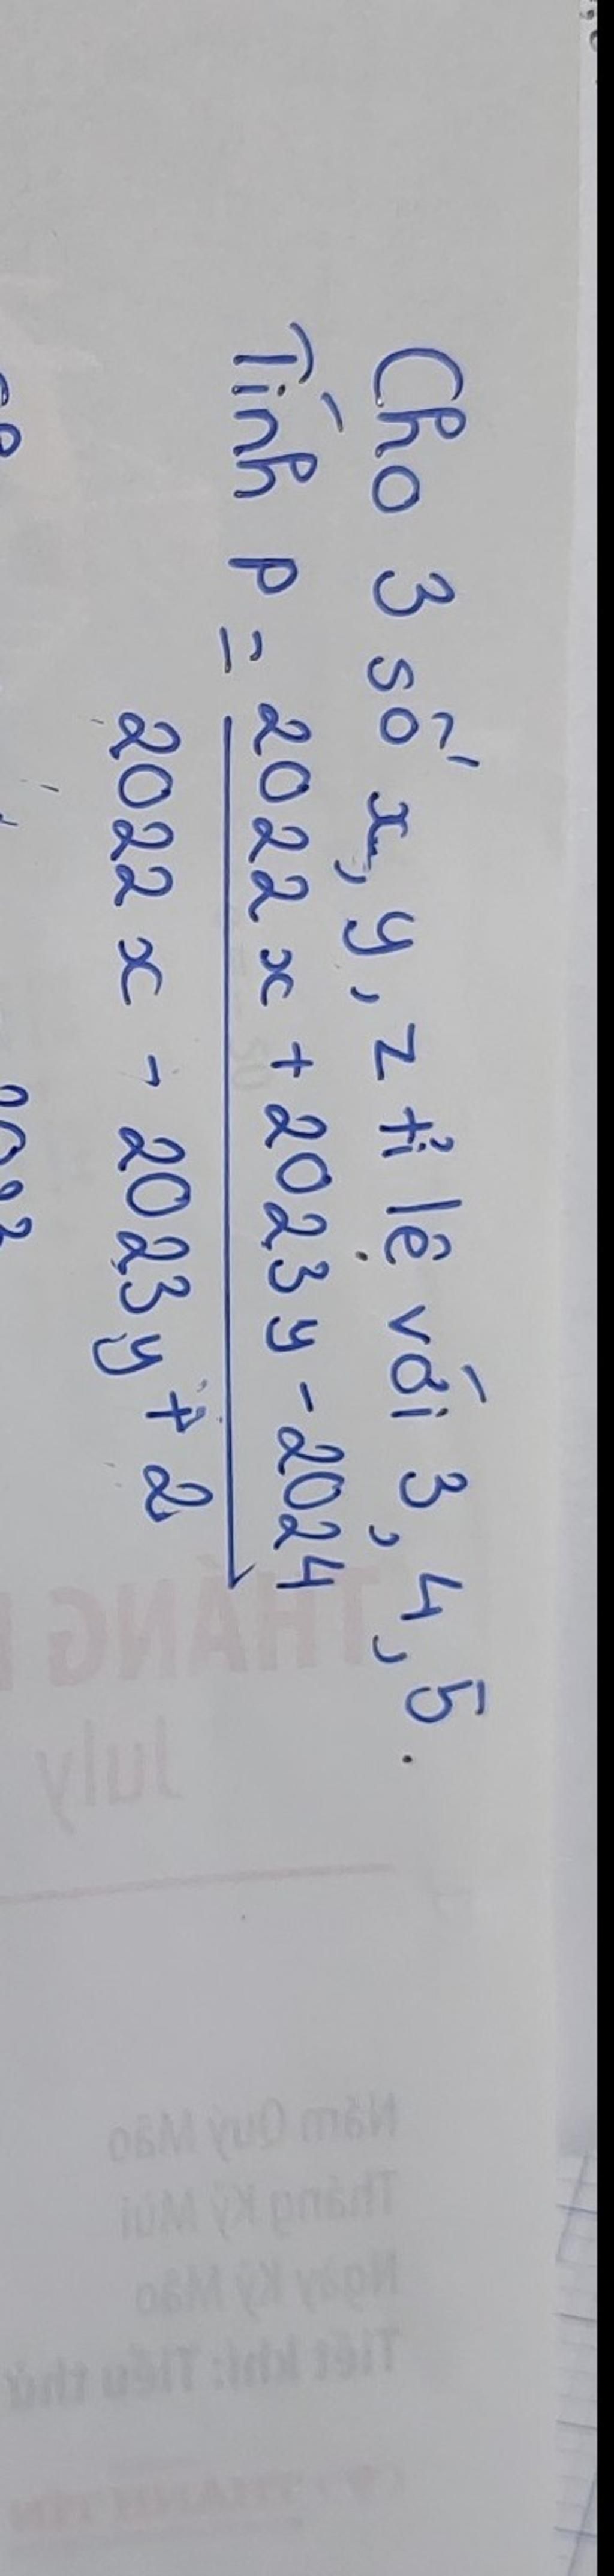 Cho 3 số x, y, z tỉ lệ với 3, 4, 5.
Tính P = 2022x + 2023y - 2024
2022x - 2023y + 2
THÁNG
July
Năm Quý Mão
Tháng Kỷ Mùi
Ngày Kỷ Mão
Tiết khí: Tiểu thử